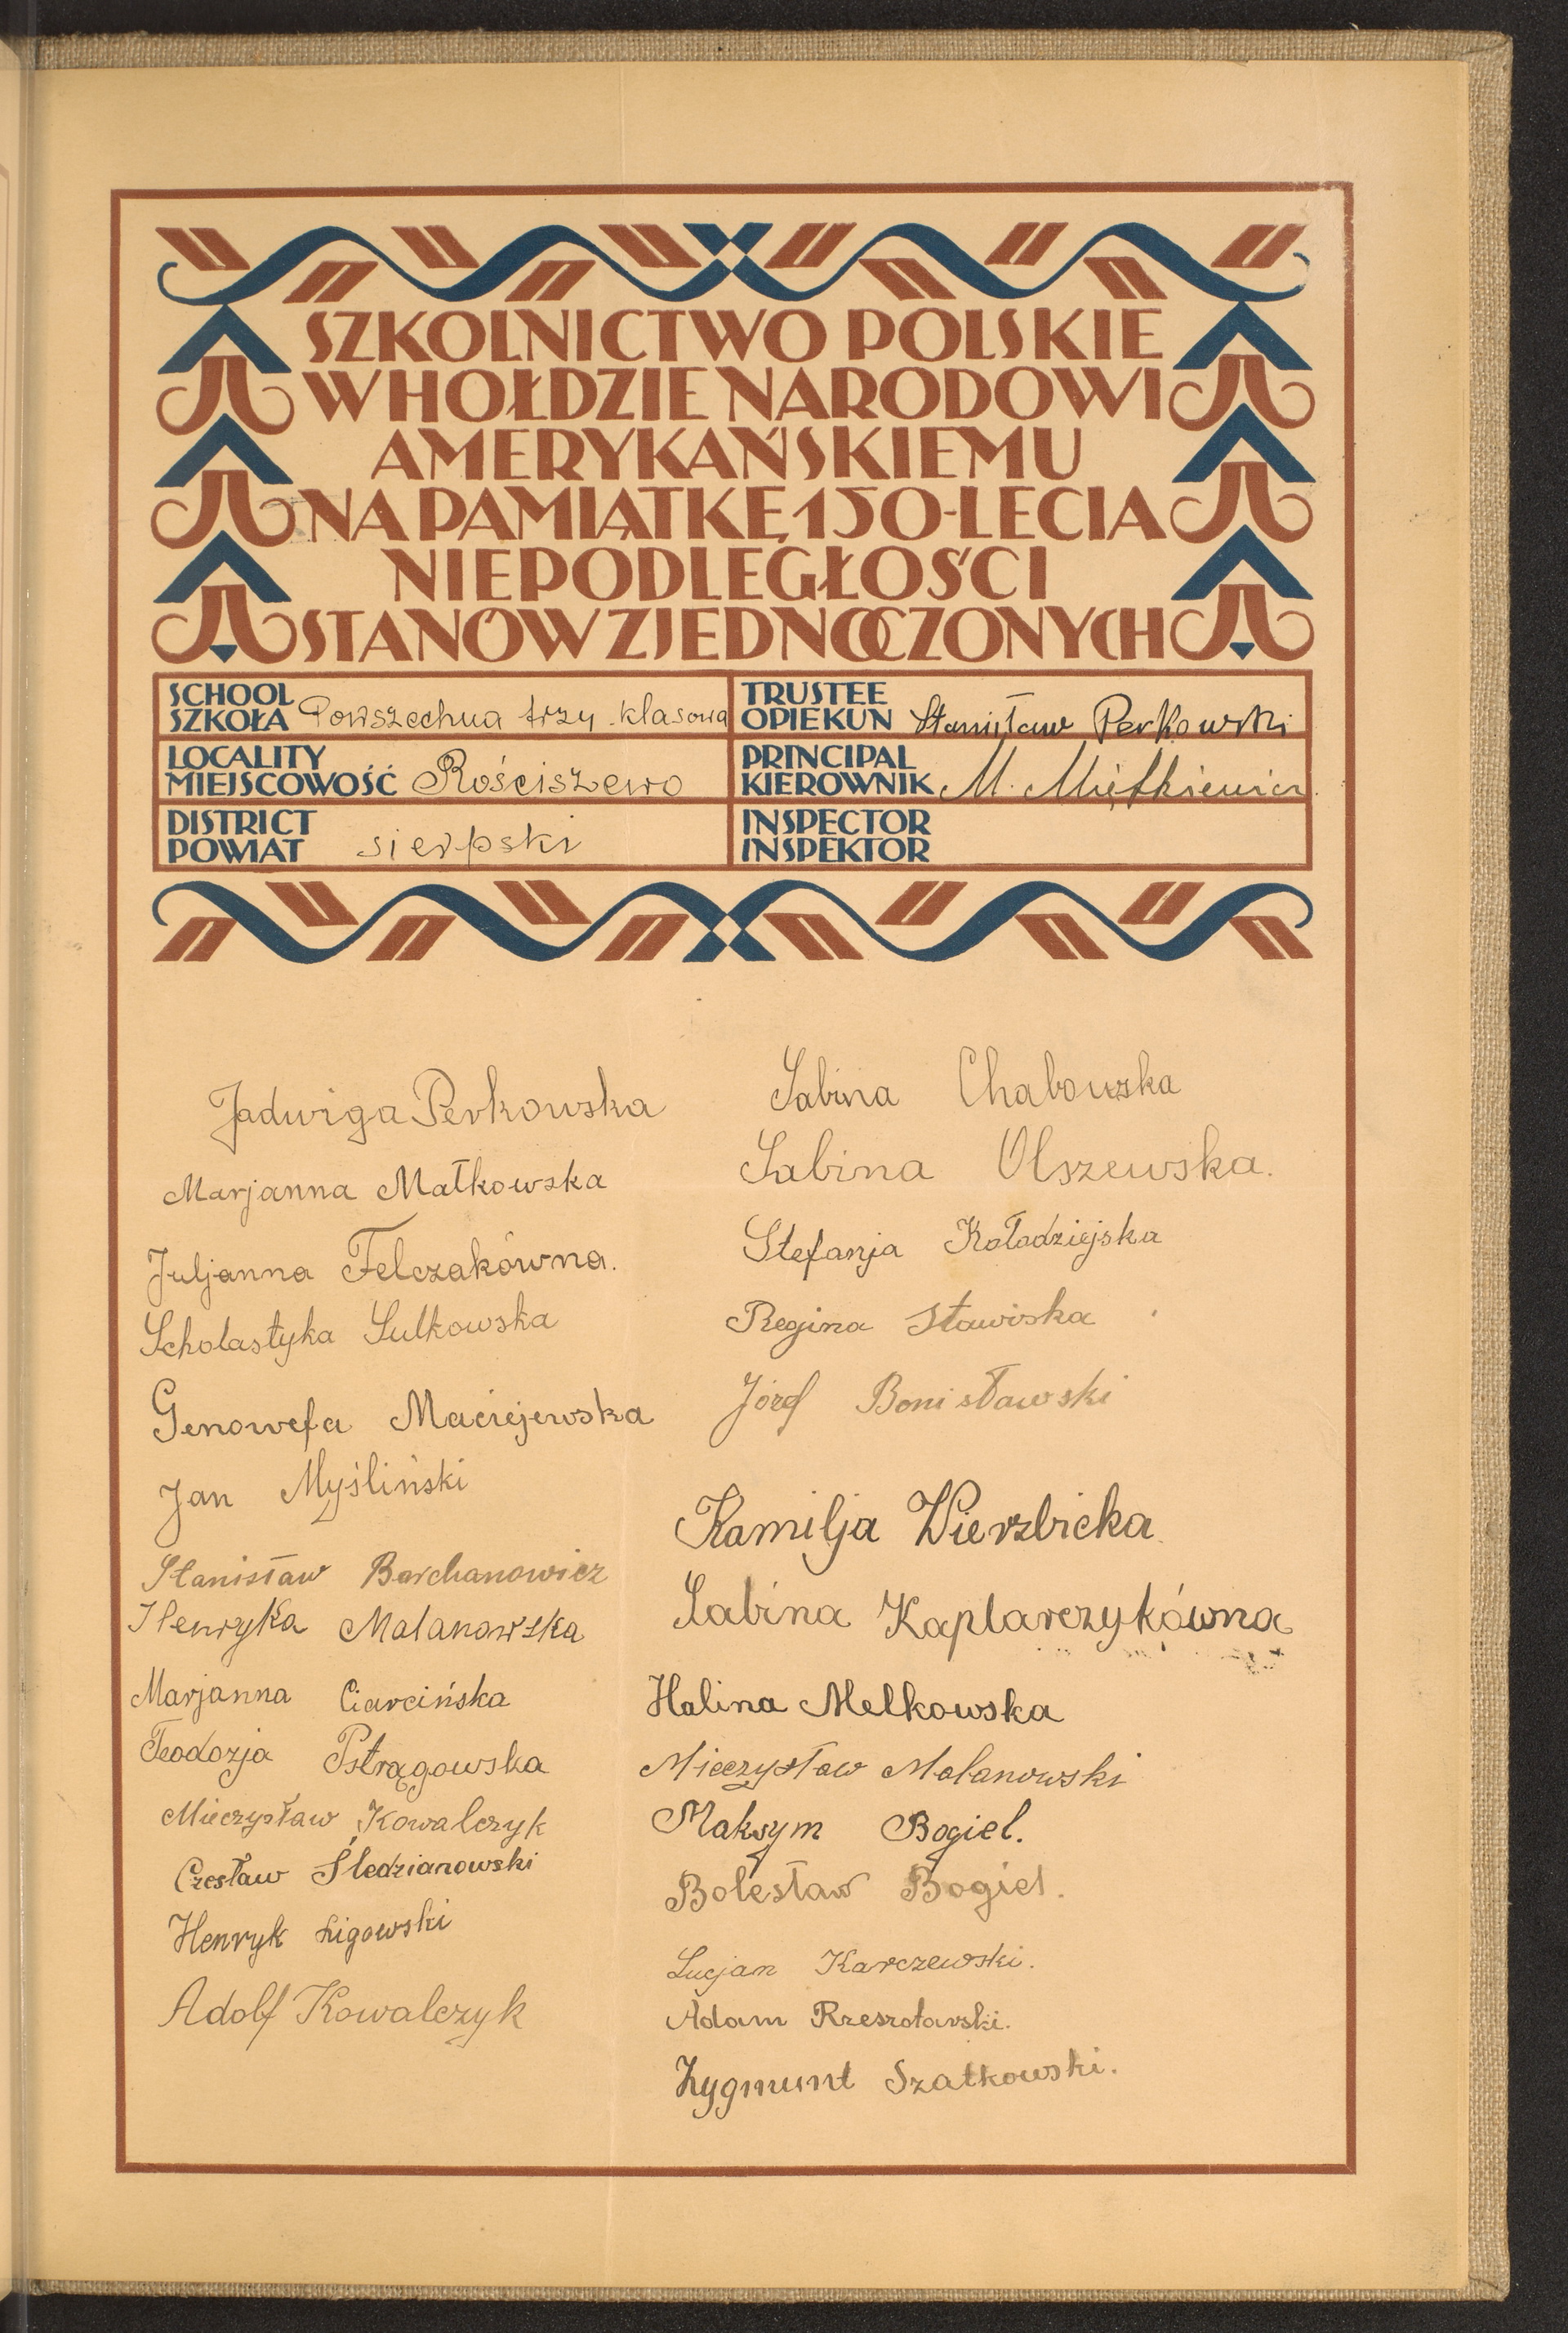 SZKOLNICTWO POLSKIE
W HOŁDZIE NARODOWI
AMERYKAŃSKIEMU
NA PAMIĄTKĘ 150-LECIA
NIEPODLEGŁOŚCI
STANÓW ZJEDNOCZONYCH
SCHOOL
SZKOŁA Powszechna trzy klasowa
TRUSTEE
OPIEKUN Stanisław Perkowski
LOCALITY
MIEJSCOWOŚĆ Rościszewo
PRINCIPAL
KIEROWNIK M. Miętkiewicz
DISTRICT
POWIAT sierpski
INSPECTOR
INSPEKTOR
Jadwiga Perkowska
Marjanna Małkowska
Juljanna Felczakówna.
Scholastyka Sulkowska
Genowefa Maciejewska
Jan Myśliński
Stanisław Barchanowicz
Henryka Malanowska
Marjanna Ciarcińska
Teodozja Pstrągowska
Mieczysław Kowalczyk
Czesław Śledzianowski
Henryk Ligowski
Adolf Kowalczyk
Sabina Chabowska
Sabina Olszewska.
Stefanja Kołodziejska
Regina Stawiska
Józef Bonisławski
Kamilja Wierzbicka
Sabina Kaplarczykówna
Halina Melkowska
Mieczysław Malanowski
Maksym Bogiel.
Bolesław Bogiel.
Lucjan Karczewski.
Adam Rzeszotarski.
Zygmunt Szatkowski.